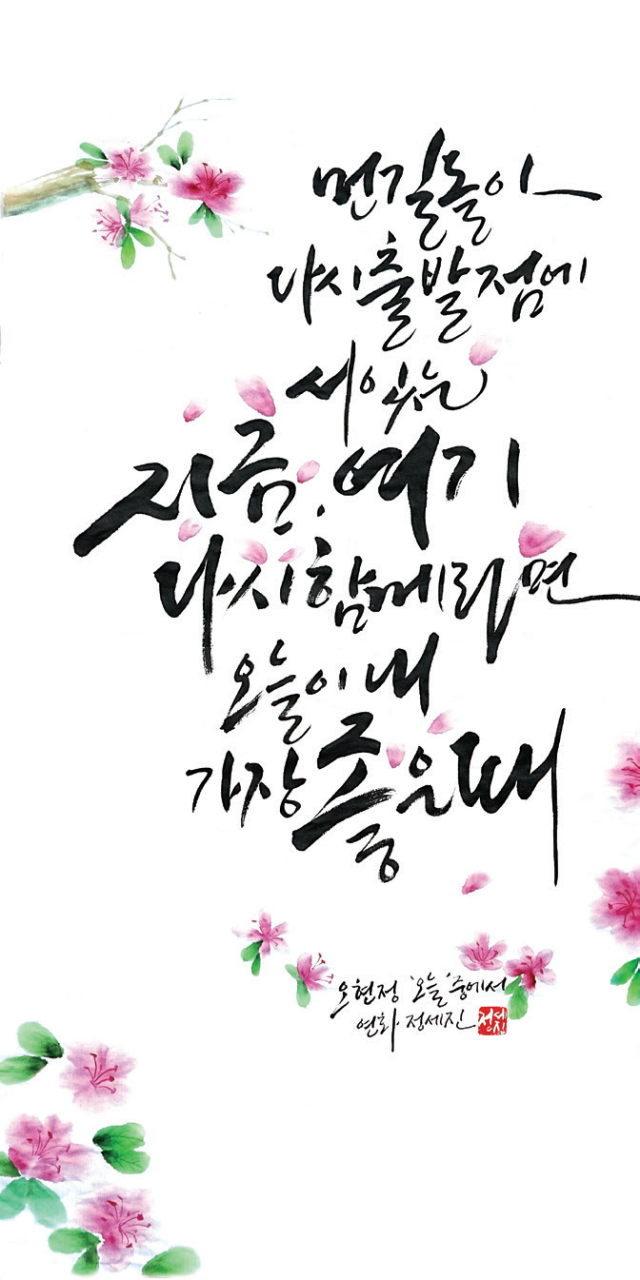 먼길돌아
다시출발점에
서있는
지금, 여기
다시함께라면
오늘이 내
가장 좋은때
오현정 '오늘' 중에서
연화 정세진
정세진